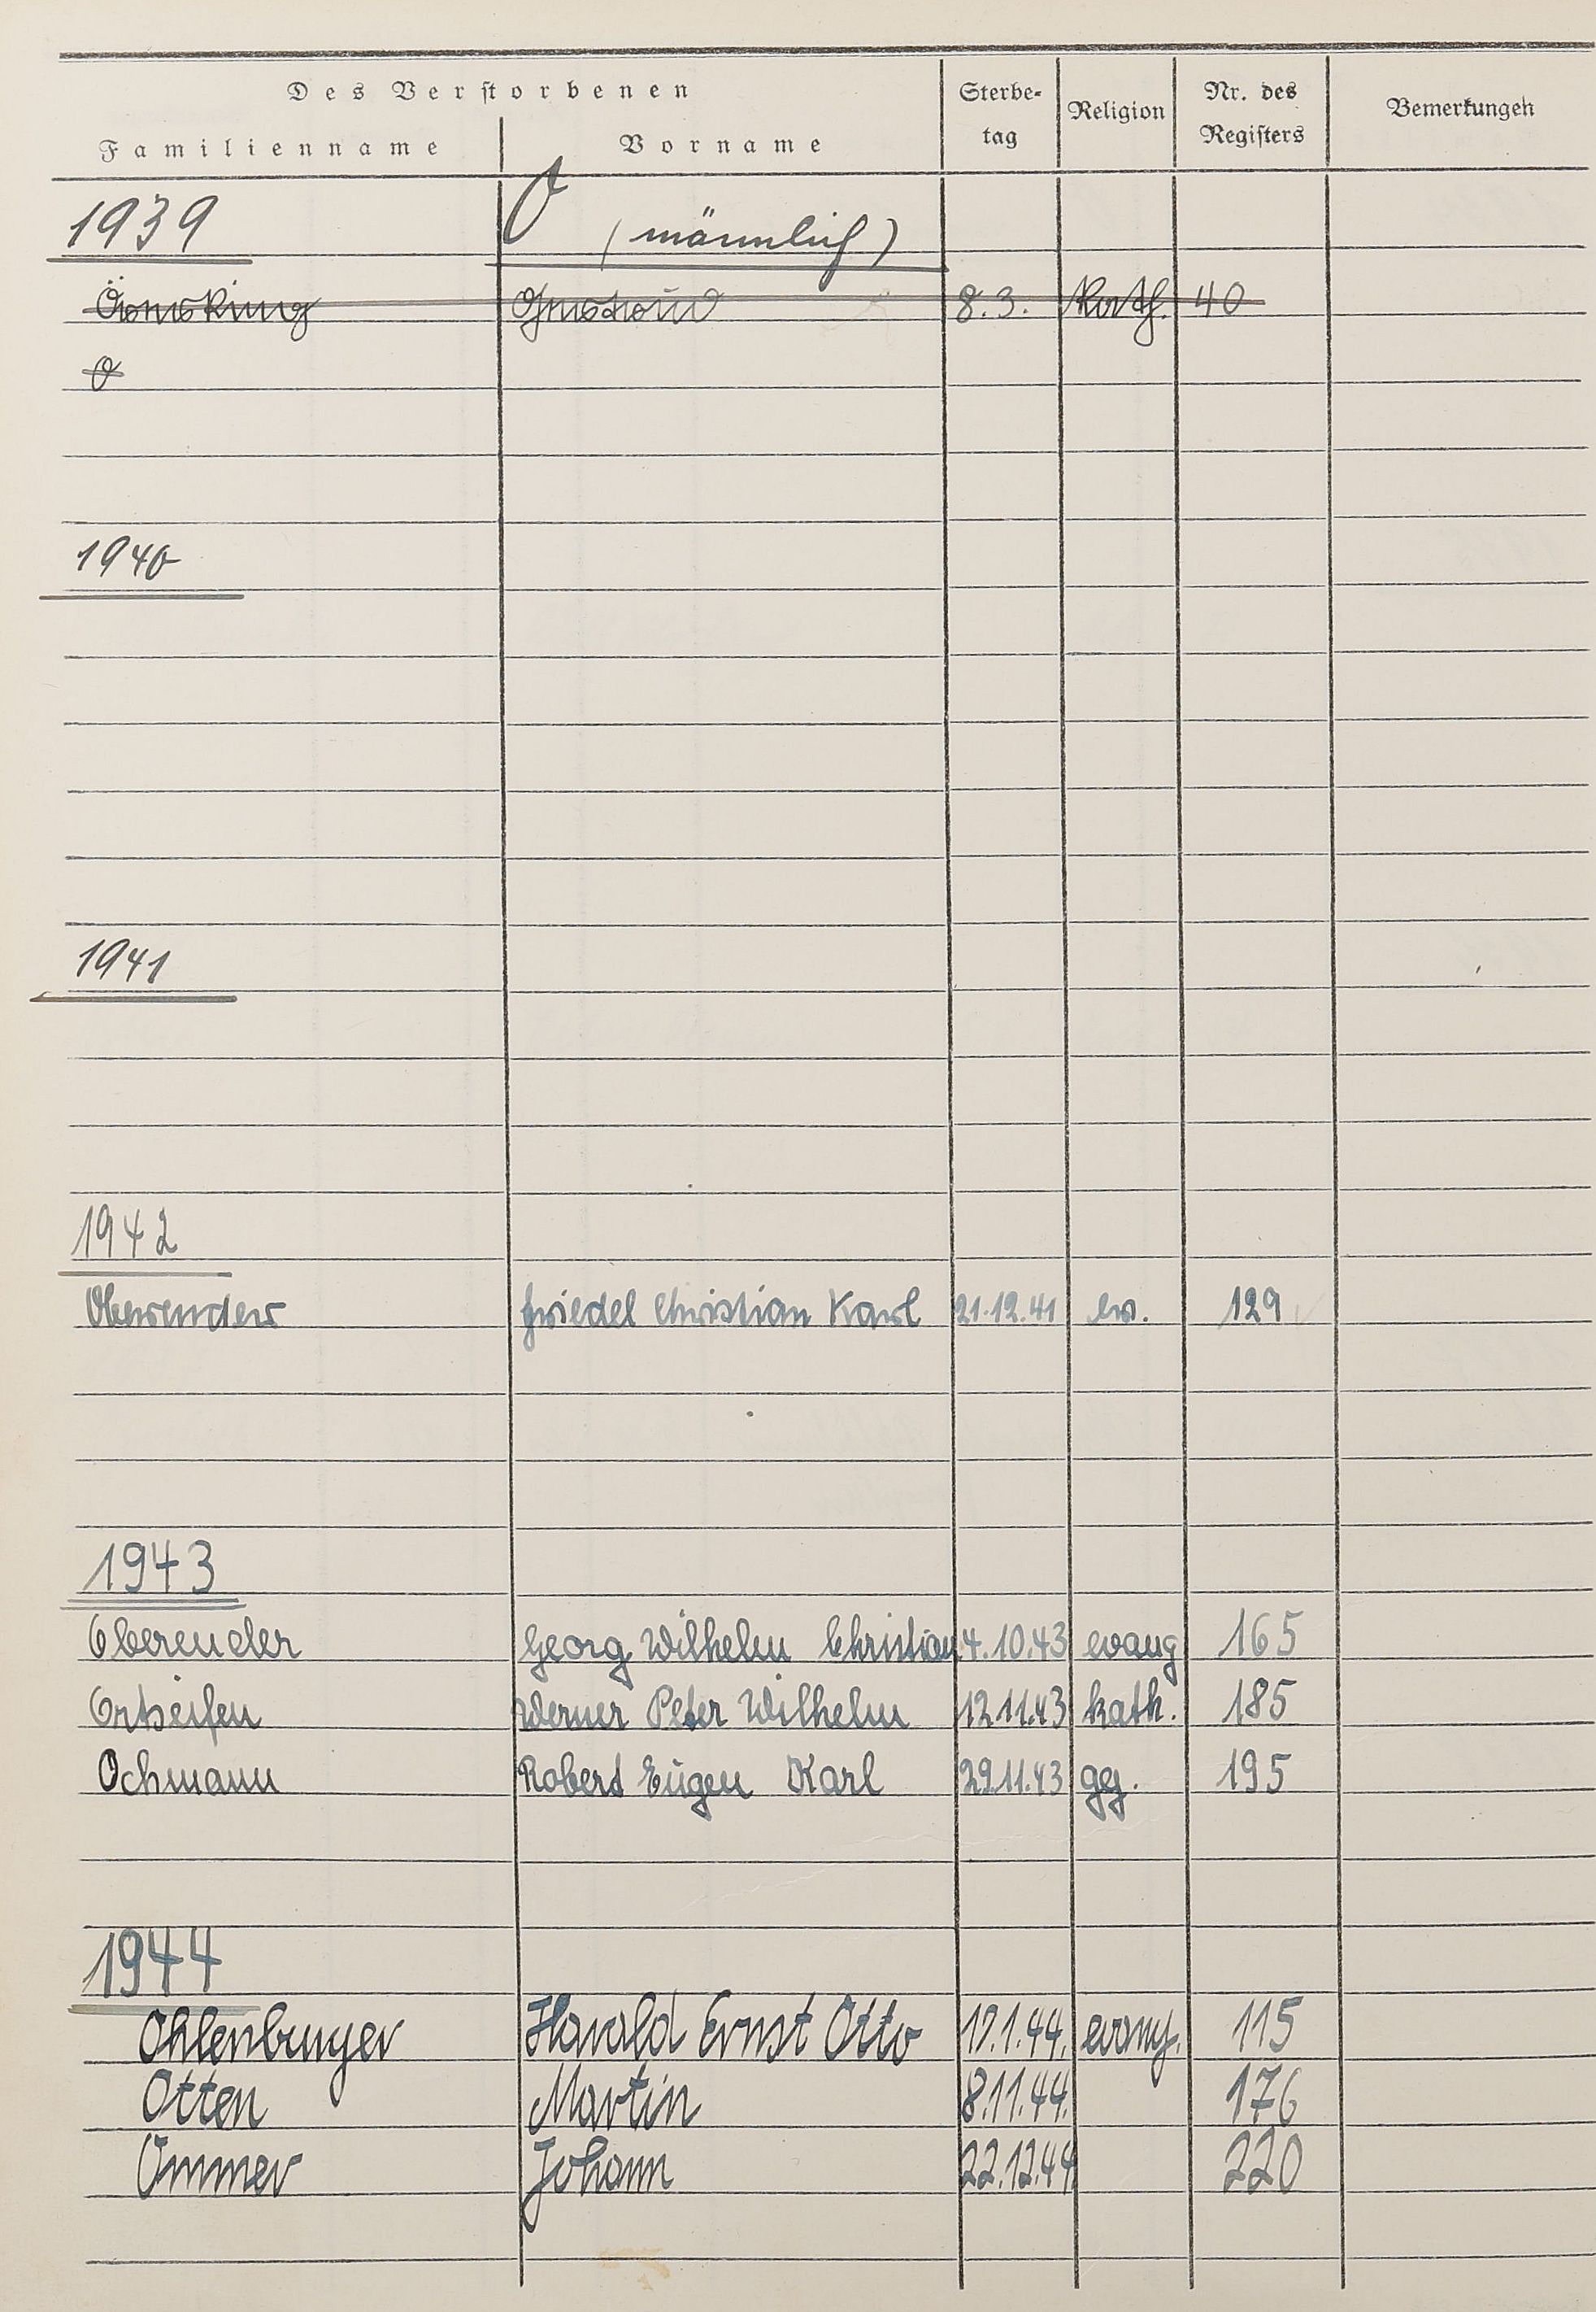 Des Verstorbenen
Familienname Vorname Sterbe-tag Religion Nr. des Registers Bemerkungen
1939 O (männlich)
8.3. Kath. 40
O
1940
1941
1942
Oberender Friedel Christian Karl 21.12.41 ev. 129
1943
Oberender Georg Wilhelm Christian 4.10.43 evang 165
Ortseifen Werner Peter Wilhelm 12.11.43 kath. 185
Ochmann Robert Eugen Karl 29.11.43 195
1944
Ohlenburger Harald Ernst Otto 17.1.44. evang. 115
Otten Martin 8.11.44. 176
Ommer Johann 22.12.44 220